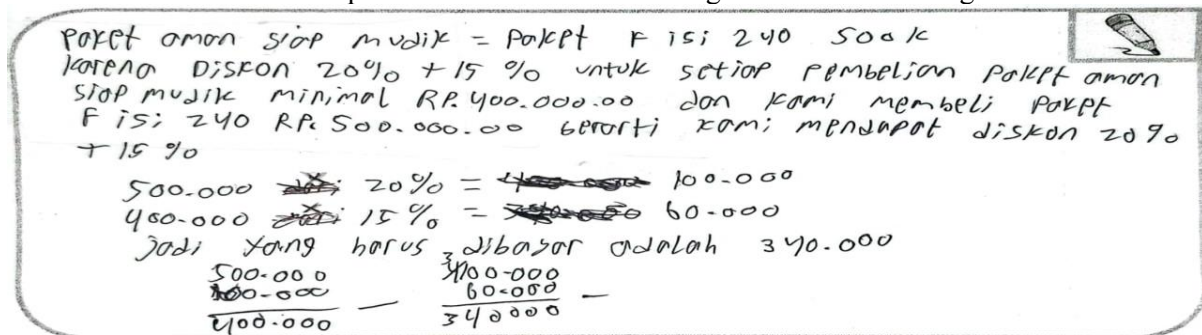 Paket aman siap mudik = Paket F isi 240 500k
karena Diskon 20% + 15 % untuk setiap Pembelian Paket aman
siap mudik minimal RP. 400.000.00 dan kami membeli Paket
F isi 240 RP. 500.000.00 berarti kami mendapat diskon 20%
+ 15 %
500.000 x 20% = 100.000
400.000 x 15 % = 60.000
Jadi yang harus dibayar adalah 340.000
500.000 400.000
100.000 60.000
400.000 340000